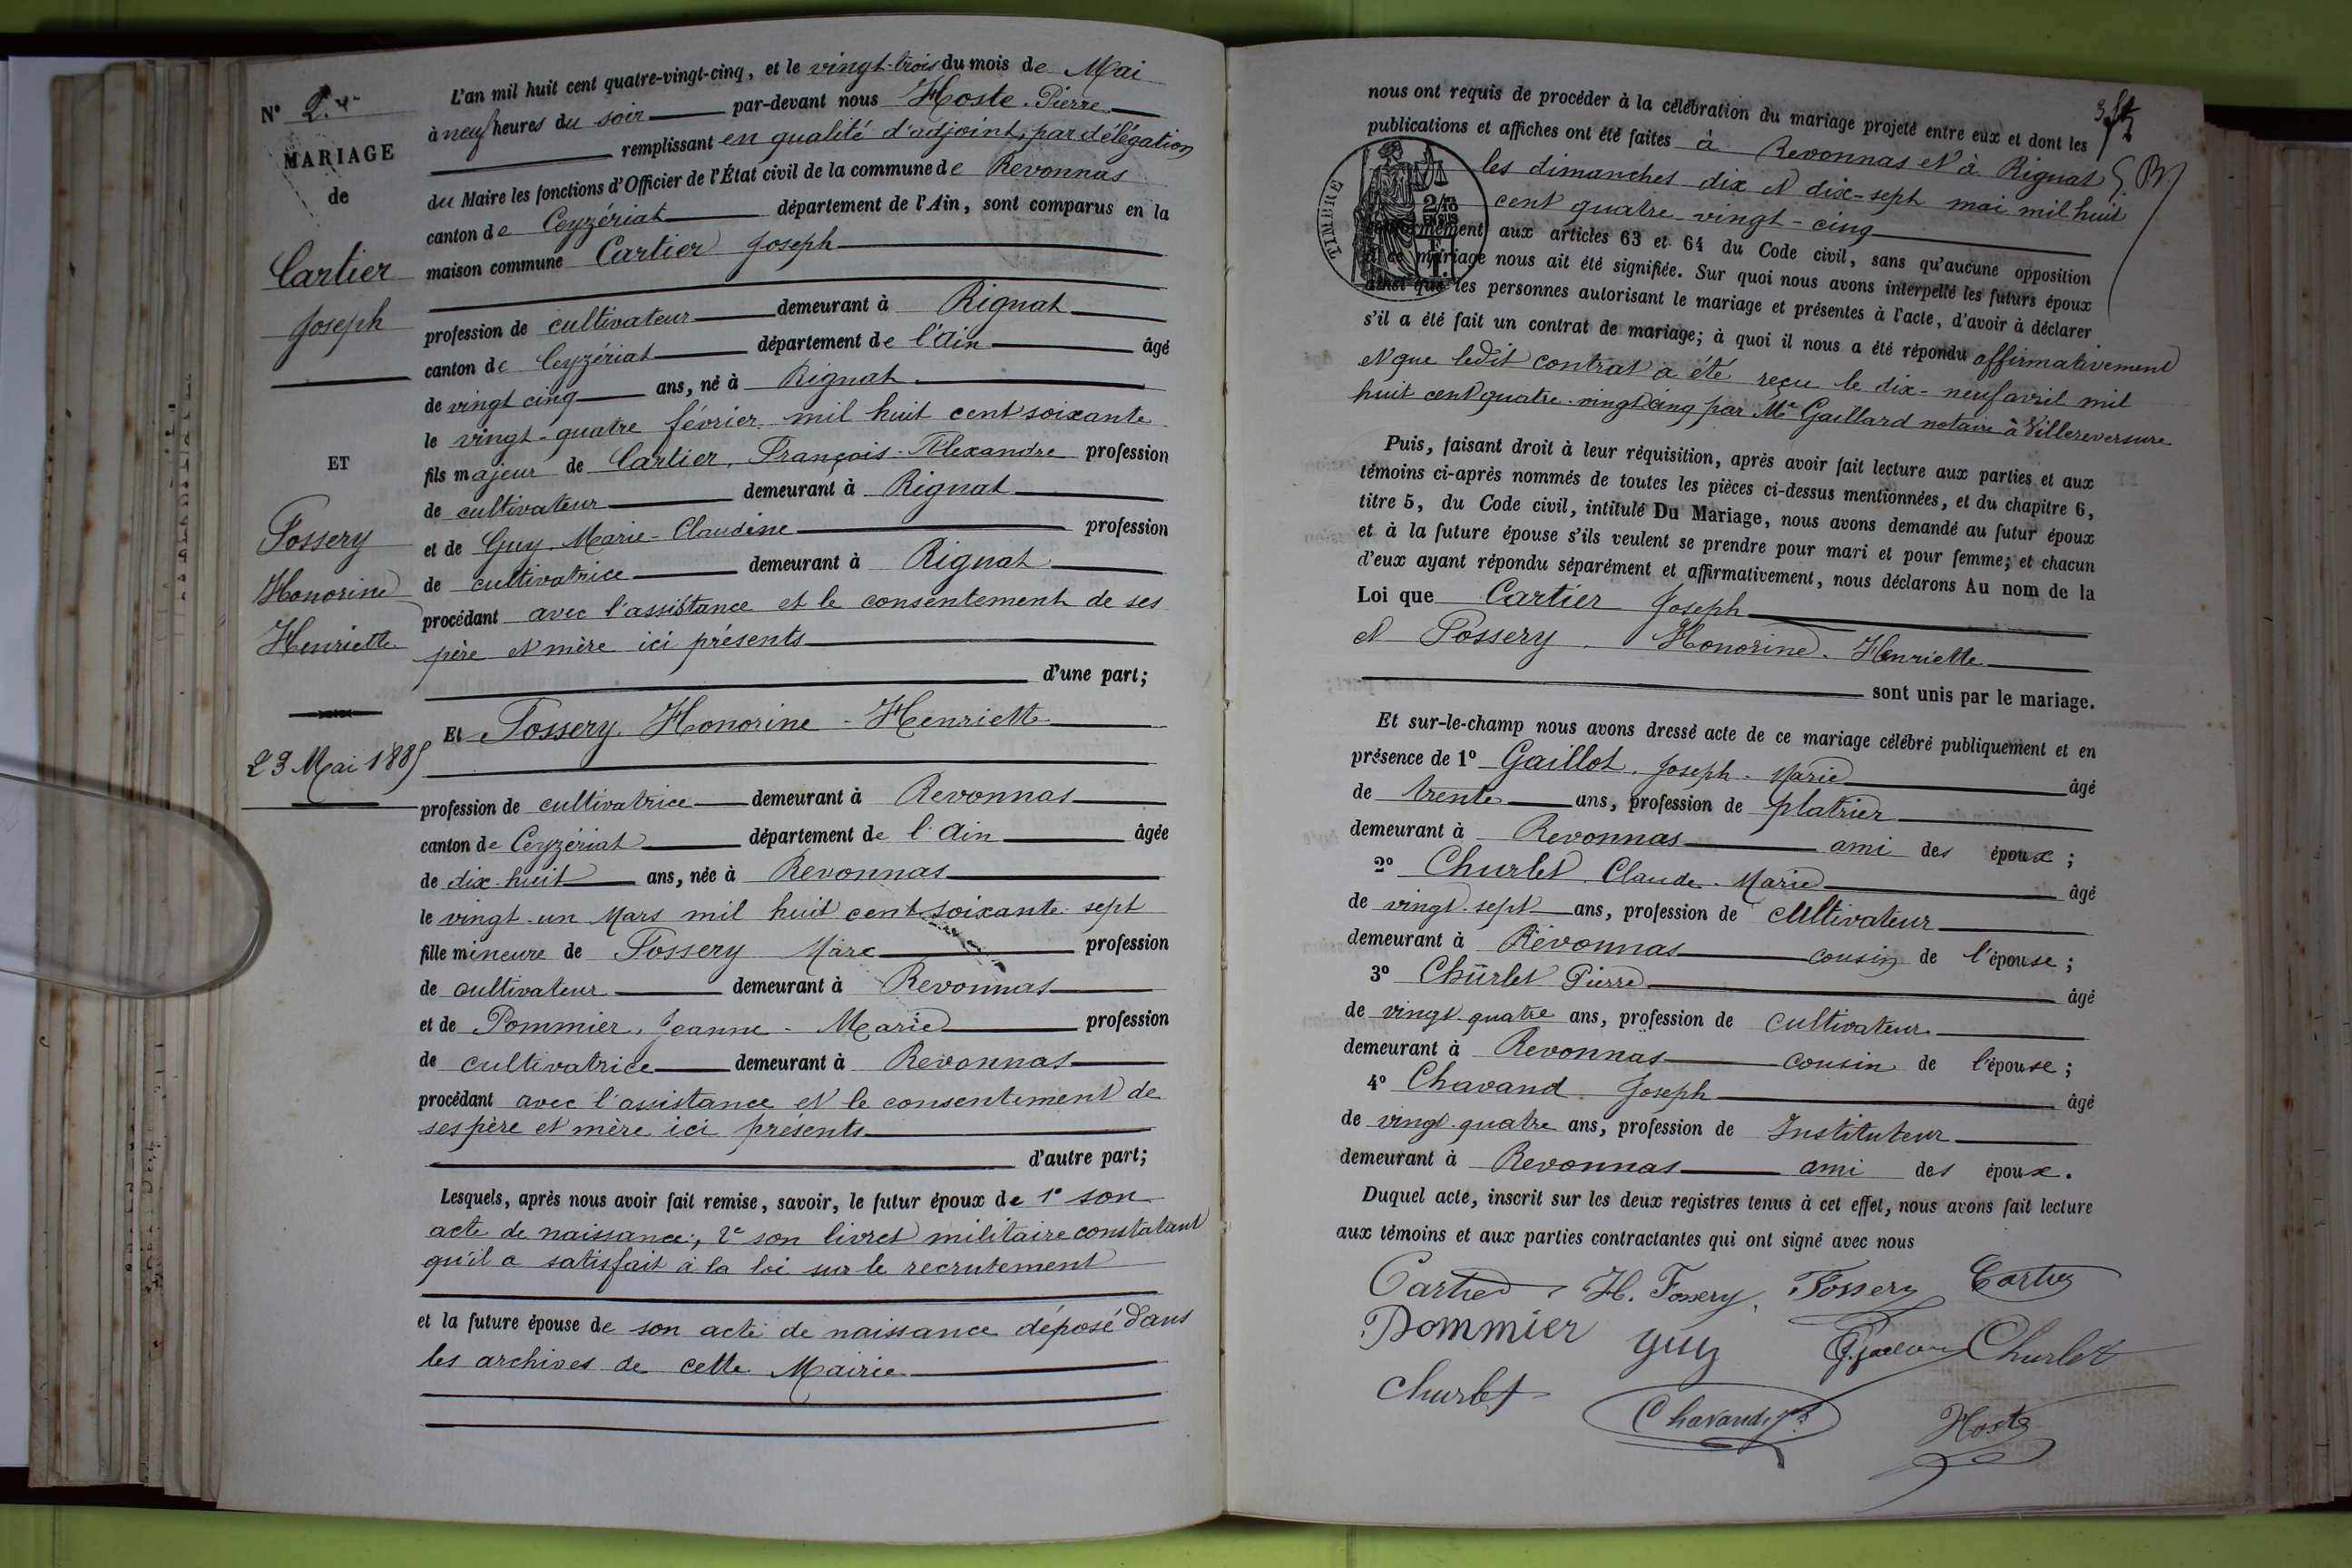 N° 2.
MARIAGE
de
Cartier
Joseph
ET
Fossery
Honorine
Henriette
23 Mai 1885
L'an mil huit cent quatre-vingt-cinq, et le vingt-trois du mois de Mai
à neuf heures du soir par-devant nous Hoste Pierre
remplissant en qualité d'adjoint, par délégation
du Maire les fonctions d'Officier de l'État civil de la commune de Revonnas
canton de Ceyzériat département de l'Ain, sont comparus en la
maison commune Cartier Joseph
profession de cultivateur demeurant à Rignat
canton de Ceyzériat département de l'Ain âgé
de vingt cinq ans, né à Rignat
le vingt-quatre février mil huit cent soixante
fils majeur de Cartier, François-Alexandre profession
de cultivateur demeurant à Rignat
et de Guy, Marie-Claudine profession
de cultivatrice demeurant à Rignat
procédant avec l'assistance et le consentement de ses
père et mère ici présents
d'une part;
Et Fossery Honorine-Henriette
profession de cultivatrice demeurant à Revonnas
canton de Ceyzériat département de l'Ain âgée
de dix-huit ans, née à Revonnas
le vingt-un Mars mil huit cent soixante sept
fille mineure de Fossery Marc profession
de cultivateur demeurant à Revonnas
et de Pommier, Jeanne-Marie profession
de cultivatrice demeurant à Revonnas
procédant avec l'assistance et le consentement de
ses père et mère ici présents
d'autre part;
Lesquels, après nous avoir fait remise, savoir, le futur époux de 1° son
acte de naissance; 2° son livret militaire constatant
qu'il a satisfait à la loi sur le recrutement
et la future épouse de son acte de naissance déposé dans
les archives de cette Mairie
nous ont requis de procéder à la célébration du mariage projeté entre eux et dont les
publications et affiches ont été faites à Revonnas et à Rignat
les dimanches dix et dix-sept mai mil huit
cent quatre-vingt-cinq
TIMBRE
conformément aux articles 63 et 64 du Code civil, sans qu'aucune opposition
à ce mariage nous ait été signifiée. Sur quoi nous avons interpellé les futurs époux
ainsi que les personnes autorisant le mariage et présentes à l'acte, d'avoir à déclarer
s'il a été fait un contrat de mariage; à quoi il nous a été répondu affirmativement
et que ledit contrat a été reçu le dix-neuf avril mil
huit cent quatre-vingt cinq par Me Gaillard notaire à Villereversure
Puis, faisant droit à leur réquisition, après avoir fait lecture aux parties et aux
témoins ci-après nommés de toutes les pièces ci-dessus mentionnées, et du chapitre 6,
titre 5, du Code civil, intitulé Du Mariage, nous avons demandé au futur époux
et à la future épouse s'ils veulent se prendre pour mari et pour femme; et chacun
d'eux ayant répondu séparément et affirmativement, nous déclarons Au nom de la
Loi que Cartier Joseph
et Fossery Honorine-Henriette
sont unis par le mariage.
Et sur-le-champ nous avons dressé acte de ce mariage célébré publiquement et en
présence de 1° Gaillot, Joseph-Marie âgé
de trente ans, profession de platrier
demeurant à Revonnas ami des époux;
2° Churlet Claude-Marie âgé
de vingt-sept ans, profession de cultivateur
demeurant à Revonnas cousin de l'épouse;
3° Churlet Pierre âgé
de vingt quatre ans, profession de cultivateur
demeurant à Revonnas cousin de l'épouse;
4° Chavand Joseph âgé
de vingt-quatre ans, profession de Instituteur
demeurant à Revonnas ami des époux.
Duquel acte, inscrit sur les deux registres tenus à cet effet, nous avons fait lecture
aux témoins et aux parties contractantes qui ont signé avec nous
Cartier H. Fossery Fossery Cartier
Pommier guy Churlet
Churlet
Chavand Hoste